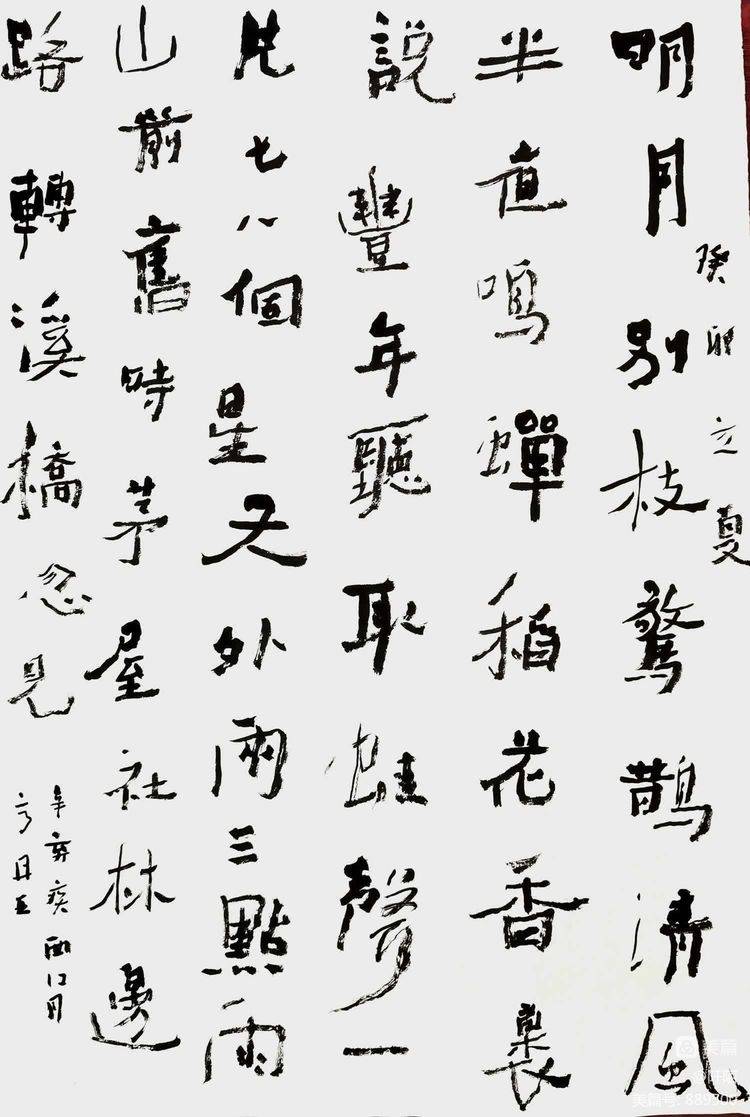 明月别枝驚鵲清風
癸卯立夏
半夜鳴蟬稻花香裏
説豐年聽取蛙聲一
片七八個星天外兩三點雨
山前舊時茅屋社林邊
路轉溪橋忽見
辛弃疾西江月
美篇